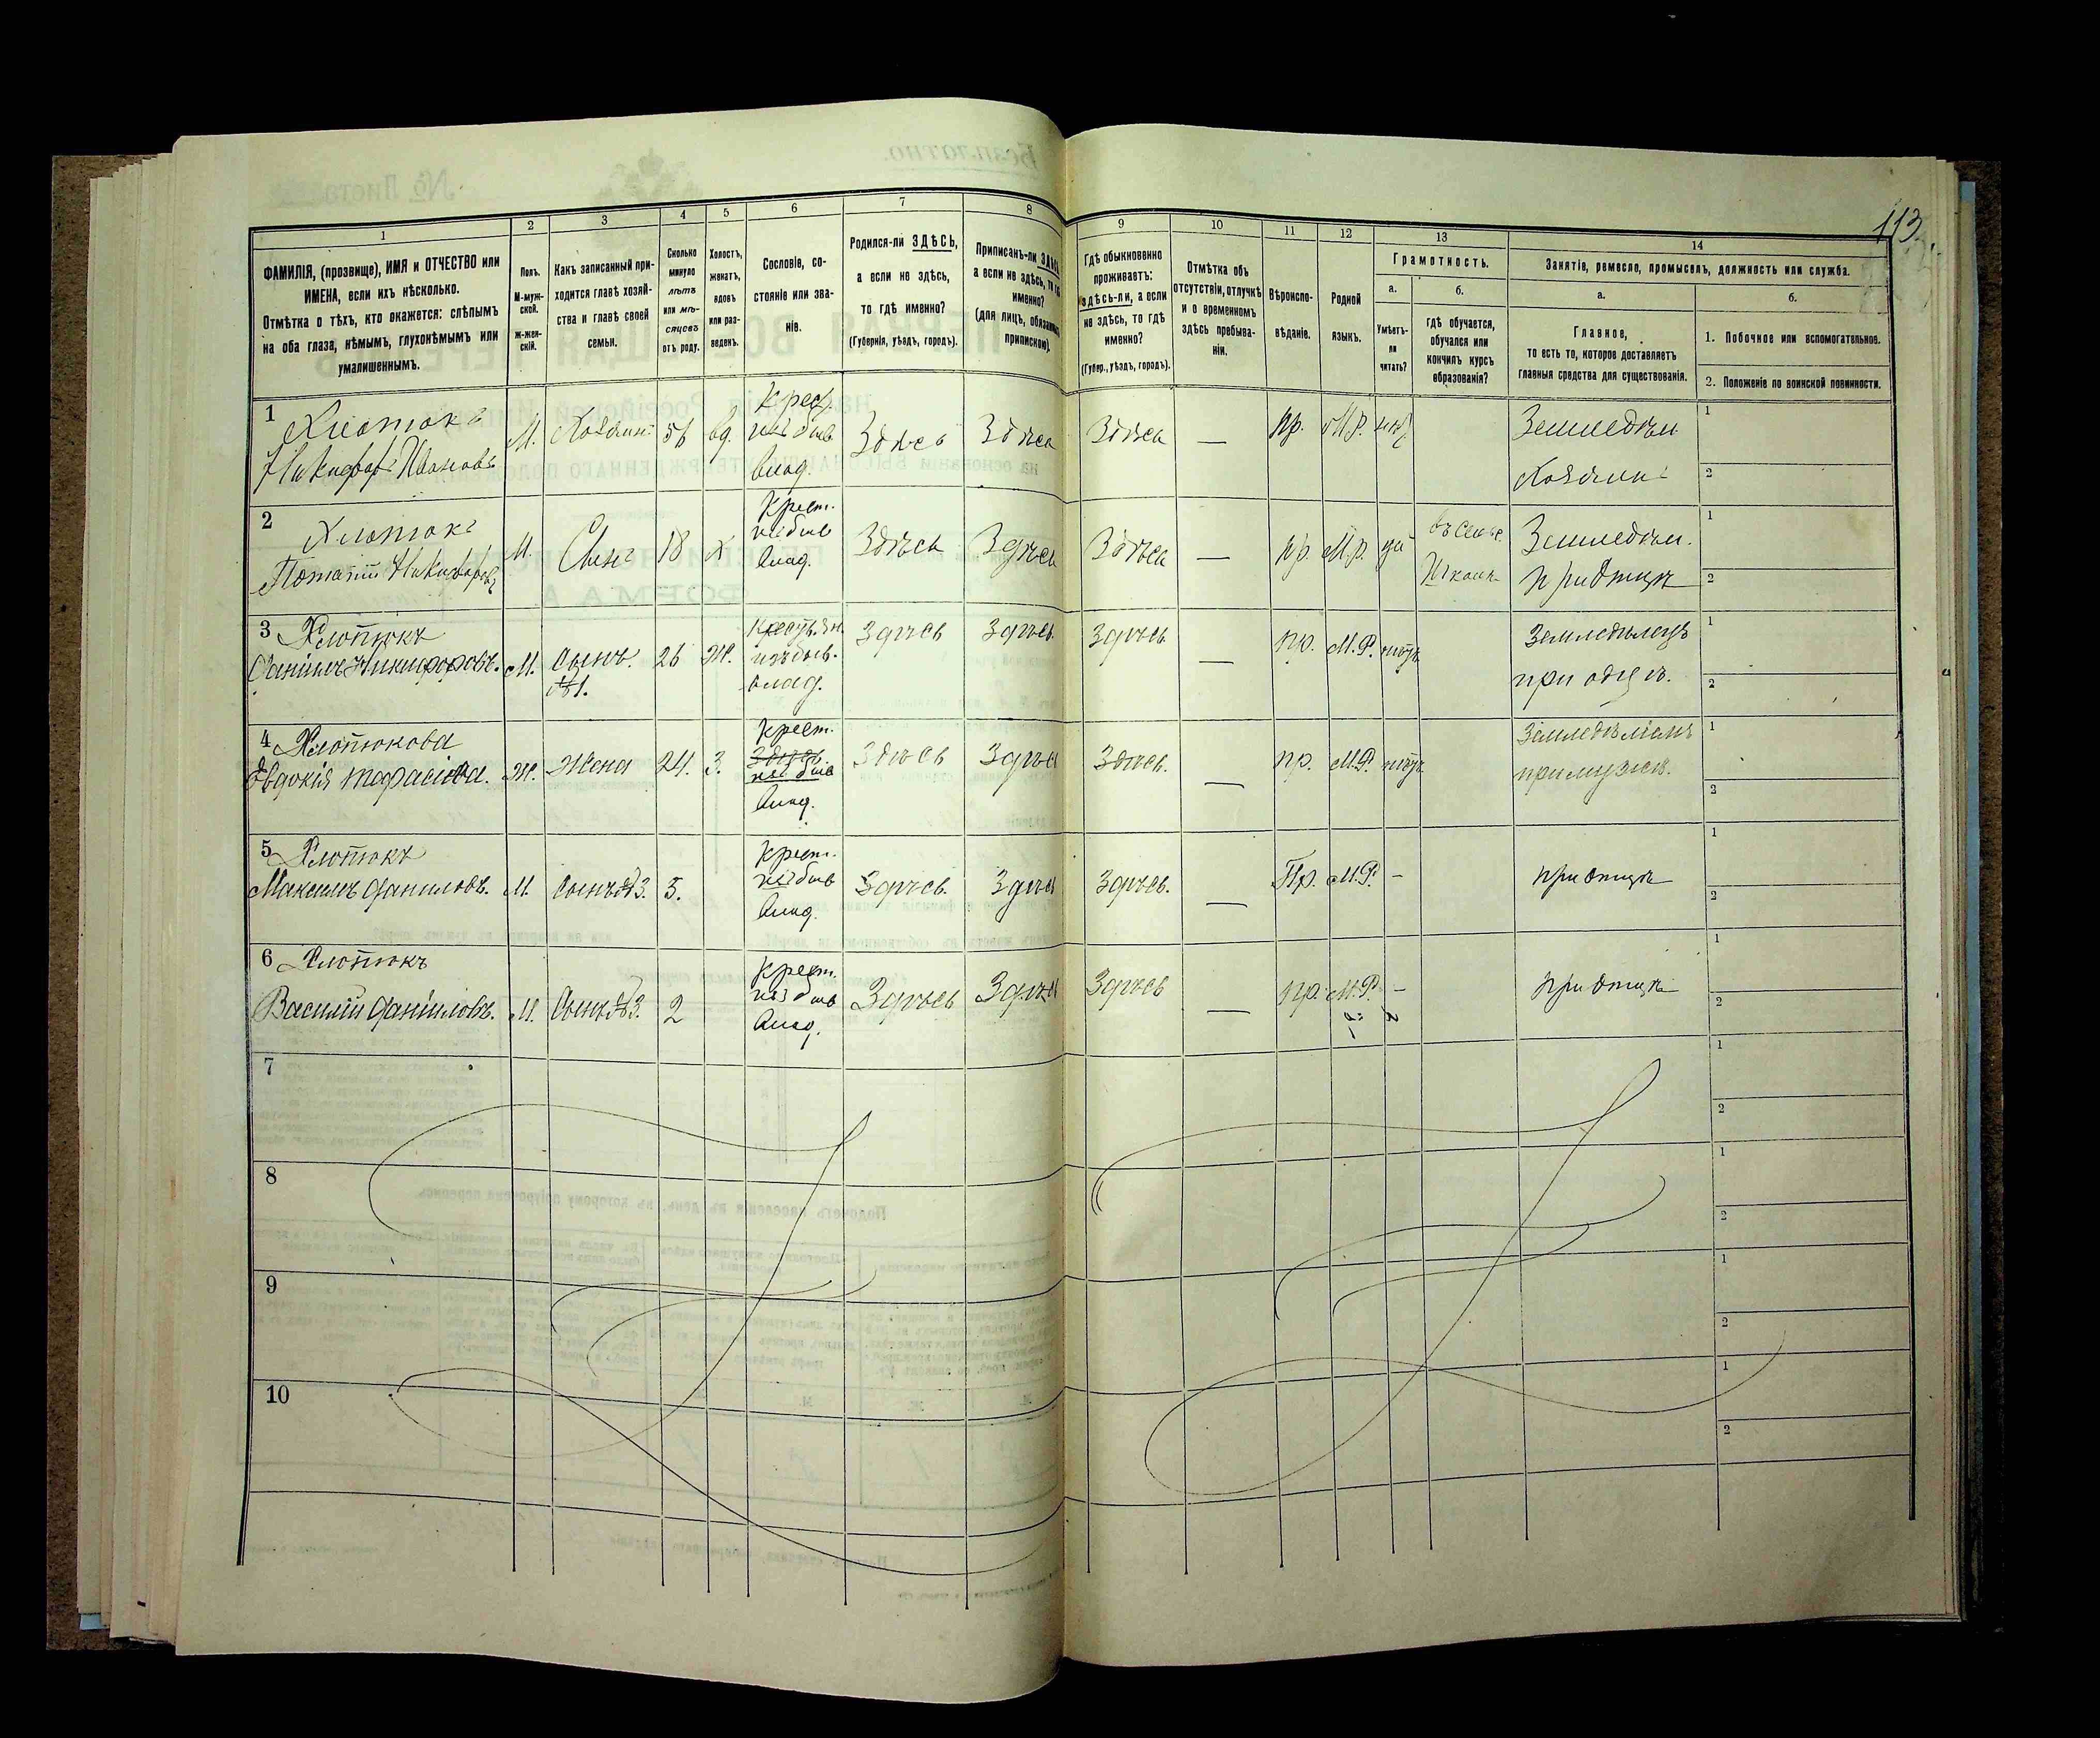 113.
1 2 3 4 5 6 7 8 9 10 11 12 13 14
ФАМИЛІЯ, (прозвище), ИМЯ и ОТЧЕСТВО или
ИМЕНА, если ихъ нѣсколько.
Отмѣтка о тѣхъ, кто окажется: слѣпымъ
на оба глаза, нѣмымъ, глухонѣмымъ или
умалишеннымъ.
Полъ.
М-муж-
ской.
Ж-жен-
скій.
Какъ записанный при-
ходится главѣ хозяй-
ства и главѣ своей
семьи.
Сколько
минуло
лѣтъ
или мѣ-
сяцевъ
отъ роду.
Холостъ,
женатъ,
вдовъ
или раз-
веденъ.
Сословіе, со-
стояніе или зва-
ніе.
Родился-ли ЗДѢСЬ,
а если не здѣсь,
то гдѣ именно?
(Губернія, уѣздъ, городъ).
Приписанъ-ли
а если не здѣсь, то гдѣ
именно?
(для лицъ,
припискою).
Гдѣ обыкновенно
проживаетъ:
здѣсь-ли, а если
не здѣсь, то гдѣ
именно?
(Губер., уѣздъ, городъ).
Отмѣтка объ
отсутствіи, отлучкѣ
и о временномъ
здѣсь пребыва-
ніи.
Вѣроиспо-
вѣданіе.
Родной
языкъ.
Грамотность.
а.
Умѣетъ-
ли
читать?
б.
Гдѣ обучается,
обучался или
кончилъ курсъ
образованія?
Занятіе, ремесло, промыселъ, должность или служба.
а.
Главное,
то есть то, которое доставляетъ
главныя средства для существованія.
б.
1. Побочное или вспомогательное.
2. Положеніе по воинской повинности.
1 Хлопюкъ
Никифоръ Ивановъ М. Хозяинъ 56 вд. Крест. изъ бывш. влад. Здѣсь Здѣсь Здѣсь — пр. М.Р. Земледѣл. Хозяинъ 1 2
2 Хлопюкъ
Потапій Никифоровъ М. Сынъ 18 х Крест. изъ бывш. влад. Здѣсь Здѣсь Здѣсь — пр. М.р. Школѣ Земледѣл. при отцѣ 1 2
3 Хлопюкъ
Даніилъ Никифоровъ. М. Сынъ №1. 26 Ж. изъ бывш. влад. Здѣсь Здѣсь Здѣсь — пр. М.Р. нѣтъ Земледѣлецъ при отцѣ. 1 2
4 Хлопюкова
Евдокія Тарасіева. Ж. Жена 24. З. Крест. изъ бывш. влад. Здѣсь Здѣсь Здѣсь. — пр. М.Р. нѣтъ при мужѣ. 1 2
5 Хлопюкъ
Максимъ Даниловъ. М. Сынъ №3. 5. Крест. изъ бывш. влад. Здѣсь Здѣсь Здѣсь. — Пр. М.Р. - при отцѣ 1 2
6 Хлопюкъ
Василій Даніиловъ. М. Сынъ №3. 2 Крест. изъ бывш. влад. Здѣсь Здѣсь Здѣсь — пр. М.Р. - при отцѣ 1 2
7 1 2
8 1 2
9 1 2
10 1 2